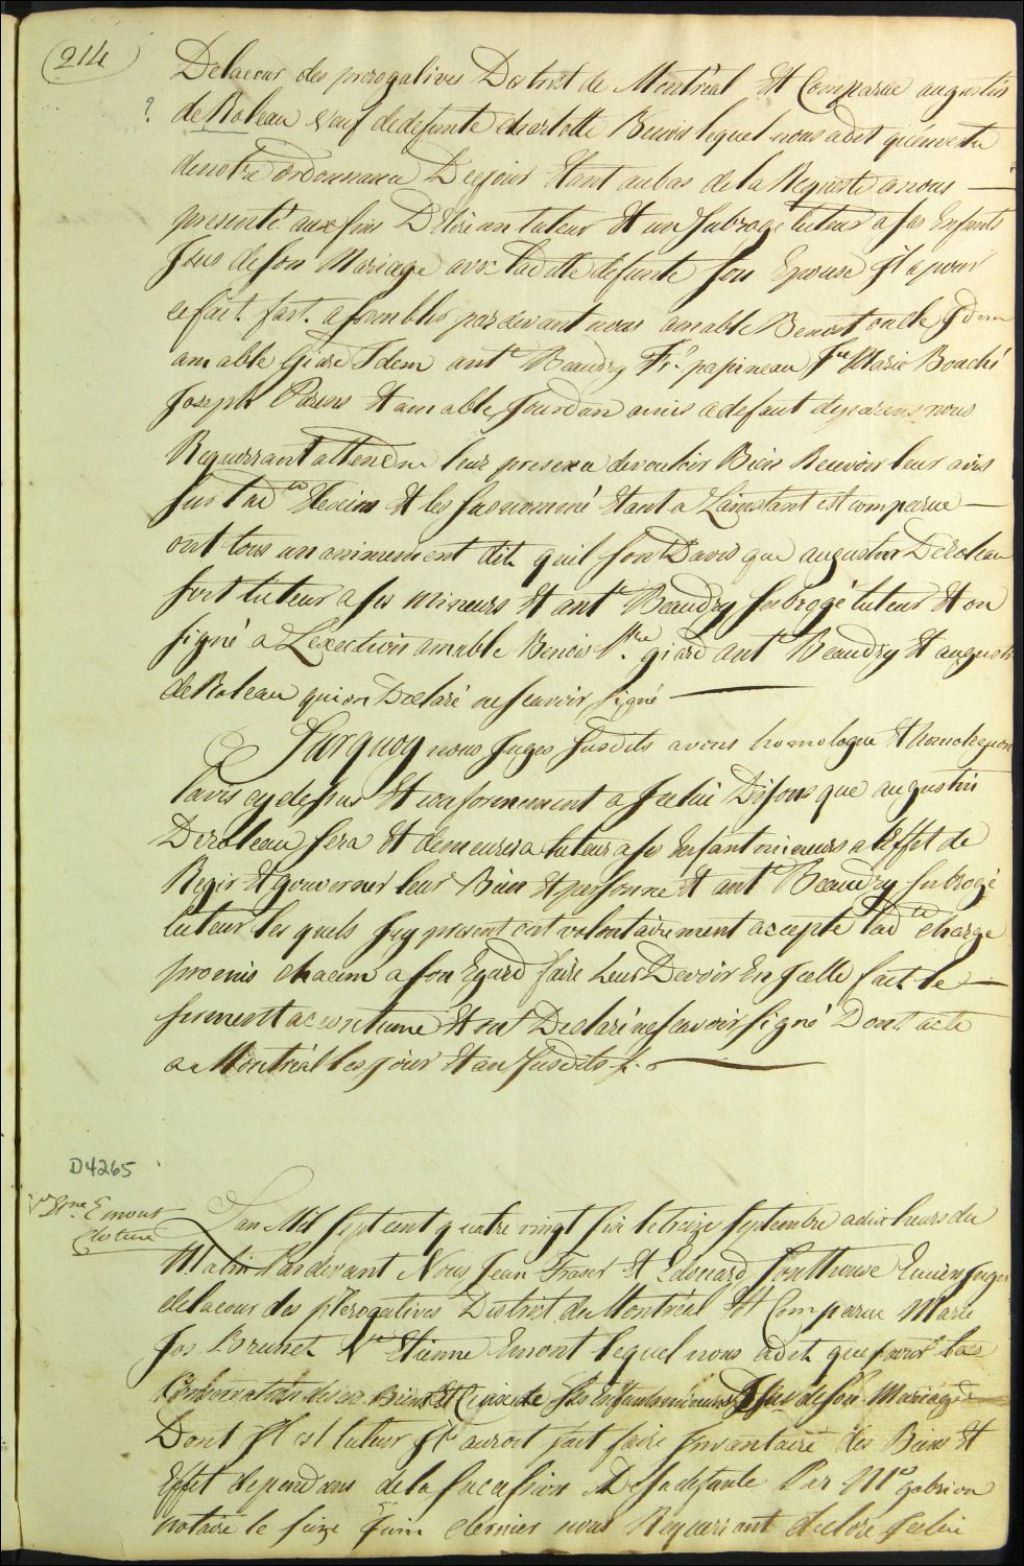 214
Delacour des prerogatives District de Montréal Est Comparue augustin
?
deRoleau veuf dedefunte charlotte Benois lequel nous adit qu'en vertu
denotre ordonnance Decejour Etant aubas dela Requeste anous —
presenté aux fins D'Elire un tuteur Et un Subrogé tuteur a ses Enfants
Jssus deson Mariage avec ladte defunte son Epouse Jl a pour
cefait fait assemblés pardevant nous amable Benoit oncle
amable Giard Jdem antne Beaudry Frs papineau Jn Marie
Joseph Parens Et amable Jourdan amis adefaut deparens nous
Requerrant attendu leur presence devouloir Bien Recevoir leur avis
sur lad Et les susnommé Etant a L'ainstant est comparue —
ont tous unanimement dit quil sont Davis que augustin Deroleau
soit tuteur a ses mineurs Et antne Beaudry subrogé tuteur Et on
signé a L'exection amable Benois giard antne Beaudry Et augustin
deRoleau qui on Declaré ne scavoir signé —
Surquoy nous Juges susdits avons homologue Et homologuons
lavis cy dessus Et conformement a Jcelui Disons que augustin
Deroleau sera Et demeurera tuteur a ses Enfant mineurs a l'Effet de
Regir Et gouverner leur Bien Et personne Et antne Beaudry subrogé
tuteur les quels Jcy present ont volontairement accepté lad te charge
promis chacun a son Egard faire leur Devoir En Jcelle fait le —
serment accoutumé Et ont Declaré ne scavoir signé Dont acte
a Montréal les jour Et an susdits —
D4265
Ve Etne Emont
Cloture
Lan Mil Sept cent quatre vingt six le treize septembre adix heures du
Matin Pardevant Nous Jean Fraser Et Edouard Southouse Ecuiers Juges
delacour des prerogatives District de Montréal Est Comparue Marie
Jos Brunet Ve Etienne Emont lequel nous adit que pour la
Conservation deces Biens Et Ceux de ses enfants mineurs Jssus deson Mariage
Dont Jl est tuteur Jl auroit fait faire Jnventaire des Biens Et
Effet dependans dela sucession Desa defunte Par Me Gabrion
notaire le seize Juin dernier nous Requeriant declore Jcelui